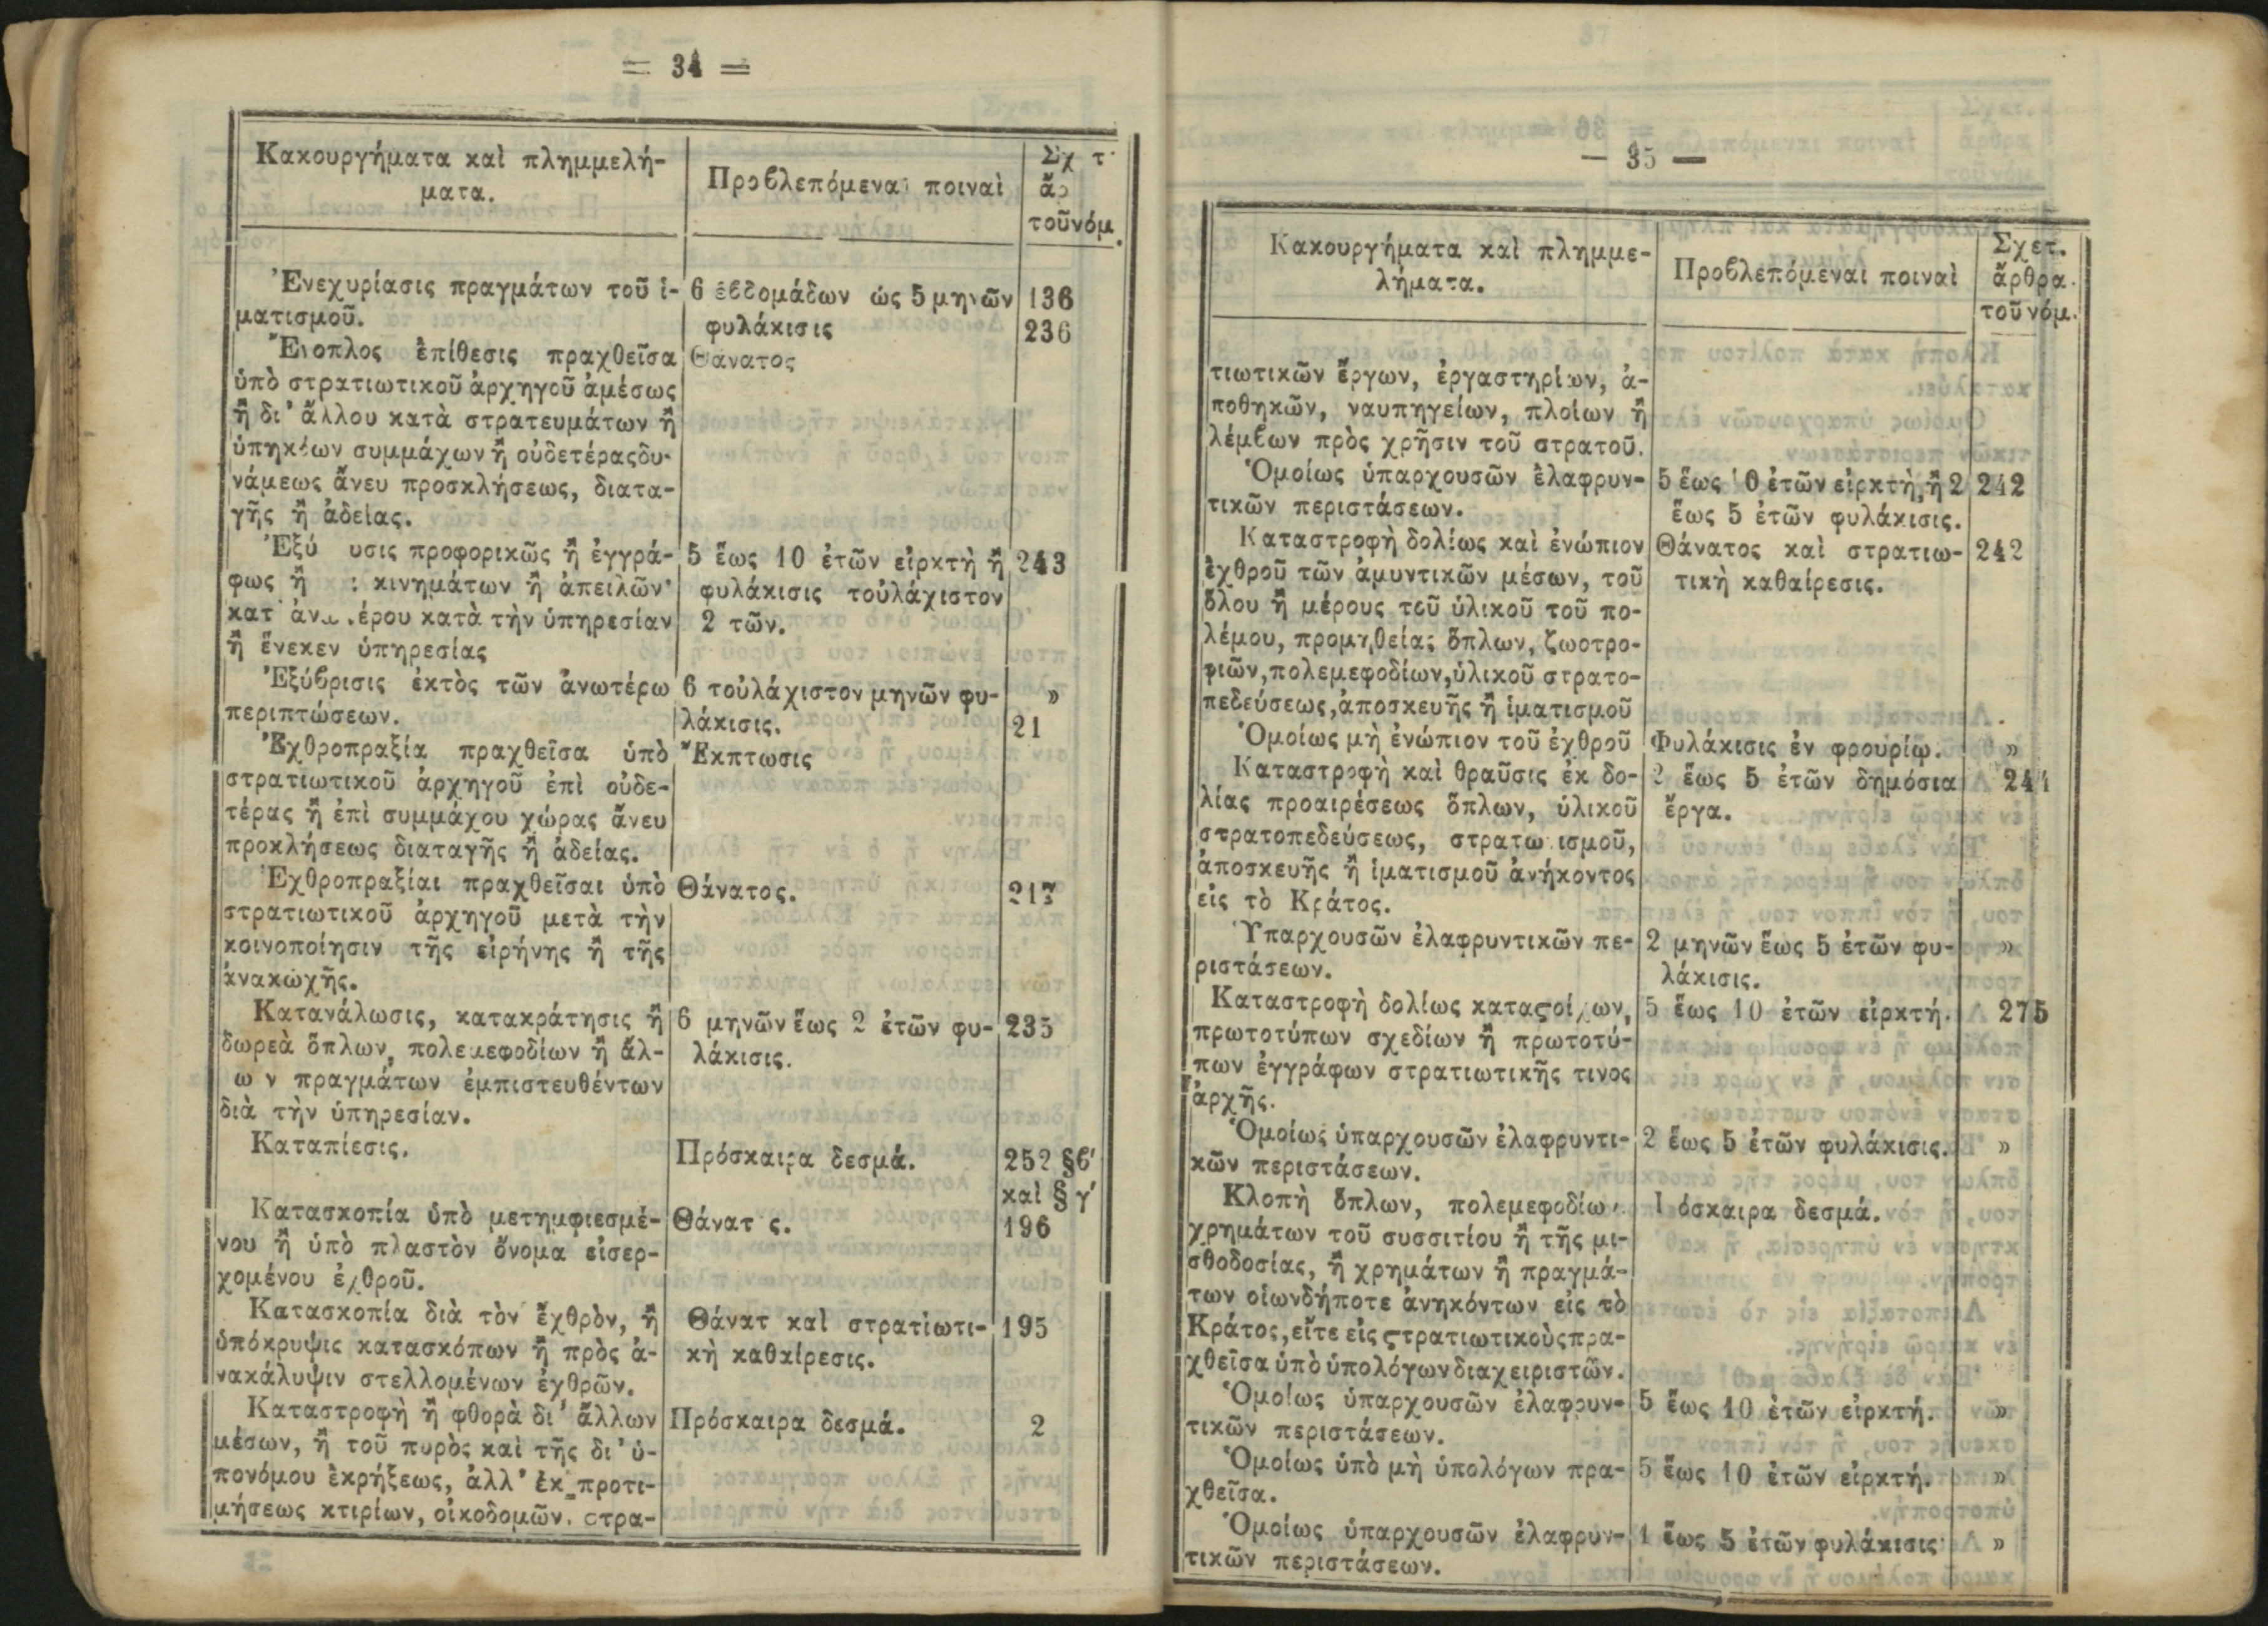 = 34 =
Κακουργήματα καὶ πλημμελή-
ματα.
Προβλεπόμεναι ποιναὶ
Σχ τ.
ἄρ
τοῦνόμ.
Ἐνεχυρίασις πραγμάτων τοῦ ἱ-
ματισμοῦ.
6 ἑβδομάδων ὡς 5 μηνῶν
φυλάκισις
136
236
Ἔνοπλος ἐπίθεσις πραχθεῖσα
ὑπὸ στρατιωτικοῦ ἀρχηγοῦ ἀμέσως
ἢ δι' ἄλλου κατὰ στρατευμάτων ἢ
ὑπηκόων συμμάχων ἢ οὐδετέραςδυ-
νάμεως ἄνευ προσκλήσεως, διατα-
γῆς ἢ ἀδείας.
Θάνατος
Ἐξύ υσις προφορικῶς ἢ ἐγγρά-
φως ἢ κινημάτων ἢ ἀπειλῶν
κατ' ἀν έρου κατὰ τὴν ὑπηρεσίαν
ἢ ἕνεκεν ὑπηρεσίας
5 ἕως 10 ἐτῶν εἱρκτὴ ἢ
φυλάκισις τοὐλάχιστον
2 τῶν.
243
Ἐξύβρισις ἐκτὸς τῶν ἀνωτέρω
περιπτώσεων.
6 τοὐλάχιστον μηνῶν φυ-
λάκισις.
»
Ἐχθροπραξία πραχθεῖσα ὑπὸ
στρατιωτικοῦ ἀρχηγοῦ ἐπὶ οὐδε-
τέρας ἢ ἐπὶ συμμάχου χώρας ἄνευ
προκλήσεως διαταγῆς ἢ ἀδείας.
Ἔκπτωσις
21
Ἐχθροπραξίαι πραχθεῖσαι ὑπὸ
στρατιωτικοῦ ἀρχηγοῦ μετὰ τὴν
κοινοποίησιν τῆς εἰρήνης ἢ τῆς
ἀνακωχῆς.
Θάνατος.
217
Κατανάλωσις, κατακράτησις ἢ
δωρεὰ ὅπλων, πολεμεφοδίων ἢ ἄλ-
ω ν πραγμάτων ἐμπιστευθέντων
διὰ τὴν ὑπηρεσίαν.
6 μηνῶν ἕως 2 ἐτῶν φυ-
λάκισις.
235
Καταπίεσις.
Πρόσκαιρα δεσμά.
252 §β'
καὶ § γ'
Κατασκοπία ὑπὸ μετημφιεσμέ-
νου ἢ ὑπὸ πλαστὸν ὄνομα εἰσερ-
χομένου ἐχθροῦ.
Θάνατ ς.
196
Κατασκοπία διὰ τὸν ἐχθρὸν, ἢ
ὑπόκρυψις κατασκόπων ἢ πρὸς ἀ-
νακάλυψιν στελλομένων ἐχθρῶν.
Θάνατ καὶ στρατιωτι-
κὴ καθαίρεσις.
195
Καταστροφὴ ἢ φθορὰ δι' ἄλλων
μέσων, ἢ τοῦ πυρὸς καὶ τῆς δι' ὑ-
πονόμου ἐκρήξεως, ἀλλ' ἐκ προτι-
μήσεως κτιρίων, οἰκοδομῶν, στρα-
Πρόσκαιρα δεσμά.
2
— 35 —
Κακουργήματα καὶ πλημμε-
λήματα.
Προβλεπόμεναι ποιναὶ
Σχετ.
ἄρθρα.
τοῦ νόμ.
τιωτικῶν ἔργων, ἐργαστηρίων, ἀ-
ποθηκῶν, ναυπηγείων, πλοίων ἢ
λέμβων πρὸς χρῆσιν τοῦ στρατοῦ.
Ὁμοίως ὑπαρχουσῶν ἐλαφρυν-
τικῶν περιστάσεων.
5 ἕως 10 ἐτῶν εἱρκτὴ, ἢ 2
ἕως 5 ἐτῶν φυλάκισις.
242
Καταστροφὴ δολίως καὶ ἐνώπιον
ἐχθροῦ τῶν ἀμυντικῶν μέσων, τοῦ
ὅλου ἢ μέρους τοῦ ὑλικοῦ τοῦ πο-
λέμου, προμηθείας ὅπλων, ζωοτρο-
φιῶν, πολεμεφοδίων, ὑλικοῦ στρατο-
πεδεύσεως, ἀποσκευῆς ἢ ἱματισμοῦ
Θάνατος καὶ στρατιω-
τικὴ καθαίρεσις.
242
Ὁμοίως μὴ ἐνώπιον τοῦ ἐχθροῦ
Φυλάκισις ἐν φρουρίῳ.
»
Καταστροφὴ καὶ θραῦσις ἐκ δο-
λίας προαιρέσεως ὅπλων, ὑλικοῦ
στρατοπεδεύσεως, στρατω ισμοῦ,
ἀποσκευῆς ἢ ἱματισμοῦ ἀνήκοντος
εἰς τὸ Κράτος.
2 ἕως 5 ἐτῶν δημόσια
ἔργα.
244
Ὑπαρχουσῶν ἐλαφρυντικῶν πε-
ριστάσεων.
2 μηνῶν ἕως 5 ἐτῶν φυ-
λάκισις.
»
Καταστροφὴ δολίως καταστοίχων,
πρωτοτύπων σχεδίων ἢ πρωτοτύ-
πων ἐγγράφων στρατιωτικῆς τινος
ἀρχῆς.
5 ἕως 10 ἐτῶν εἱρκτή.
275
Ὁμοίως ὑπαρχουσῶν ἐλαφρυντι-
κῶν περιστάσεων.
2 ἕως 5 ἐτῶν φυλάκισις.
»
Κλοπὴ ὅπλων, πολεμεφοδίων
χρημάτων τοῦ συσσιτίου ἢ τῆς μι-
σθοδοσίας, ἢ χρημάτων ἢ πραγμά-
των οἱωνδήποτε ἀνηκόντων εἰς τὸ
Κράτος, εἴτε εἰς στρατιωτικοὺς πρα-
χθεῖσα ὑπὸ ὑπολόγων διαχειριστῶν.
όσκαιρα δεσμά.
Ὁμοίως ὑπαρχουσῶν ἐλαφρυν-
τικῶν περιστάσεων.
5 ἕως 10 ἐτῶν εἱρκτή.
»
Ὁμοίως ὑπὸ μὴ ὑπολόγων πρα-
χθεῖσα.
5 ἕως 10 ἐτῶν εἱρκτή.
»
Ὁμοίως ὑπαρχουσῶν ἐλαφρυν-
τικῶν περιστάσεων.
1 ἕως 5 ἐτῶν φυλάκισις
»